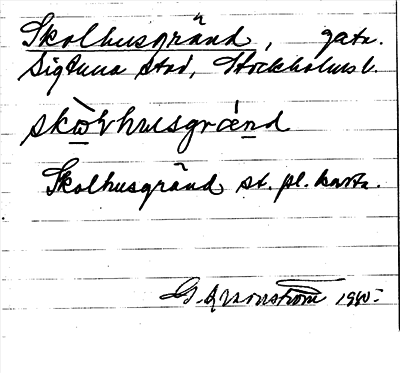 Skolhusgränd, gata.
Sigtuna stad, Stockholmsl.
skωlhusgrænd
Skolhusgränd st. pl. karta.
G. 1940.